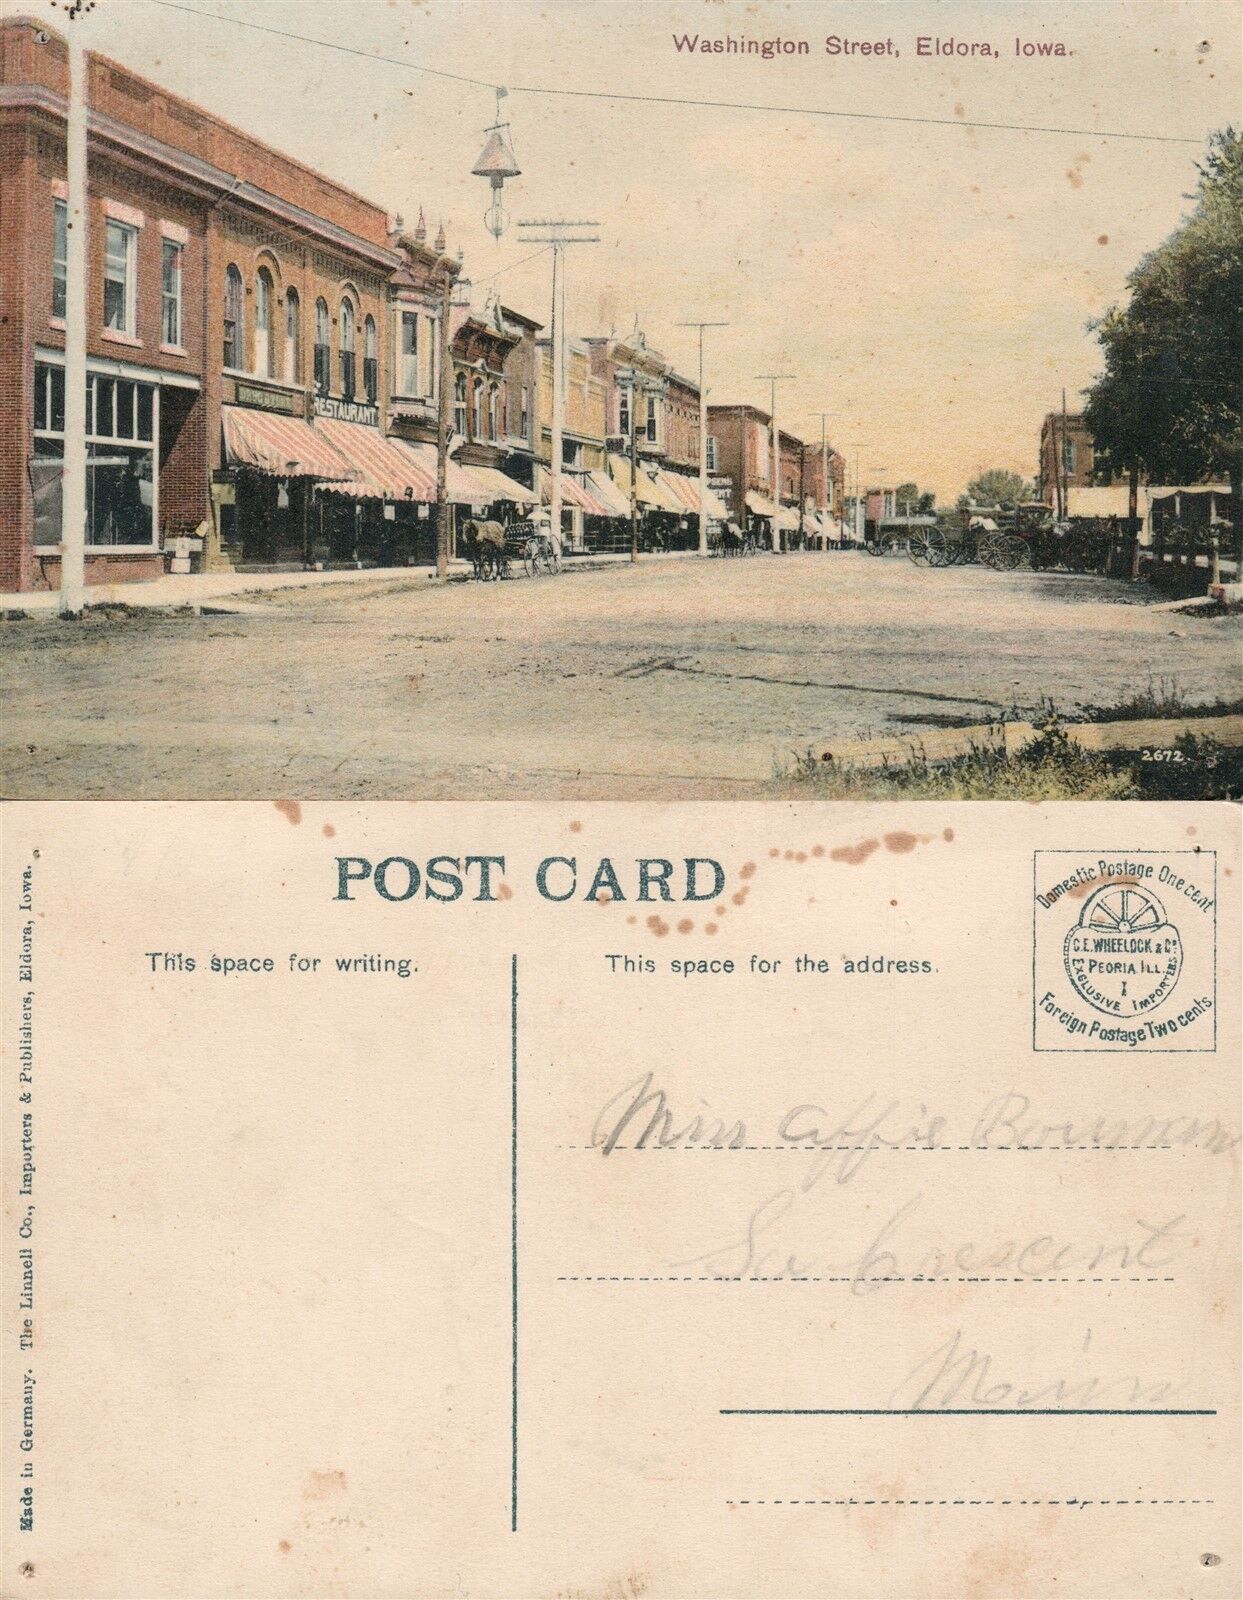 Washington Street, Eldora, Iowa.
RESTAURANT
2672.
POST CARD
This space for writing.
This space for the address.
Domestic Postage One cent
C.E. WHEELOCK & Co
PEORIA ILL.
EXCLUSIVE IMPORTERS
Foreign Postage Two cents
Miss Affie Bowman
La Crescent
Minn
Made in Germany. The Linnell Co., Importers & Publishers, Eldora, Iowa.